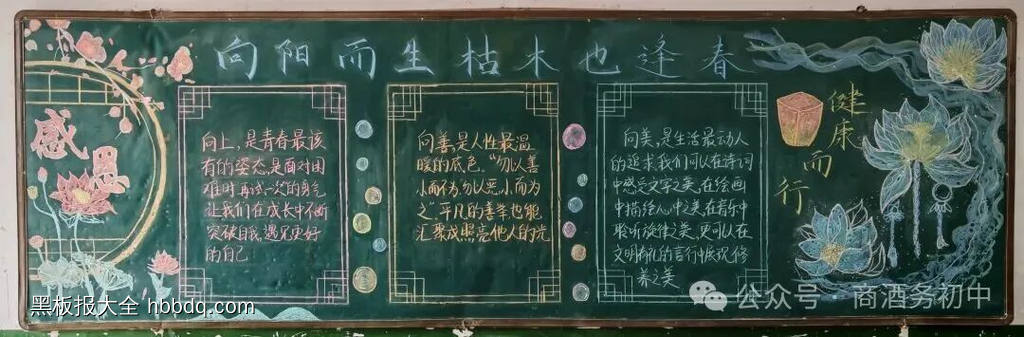 向阳而生枯木也逢春
感恩
向上,是青春最该
有的姿态,是面对困
难时再试一次的勇气
让我们在成长中不断
突破自我,遇见更好
的自己
向善,是人性最温
暖的底色。“勿以善
小而不为勿以恶小而为
之”平凡的善举也能
汇聚成照亮他人的光
向美,是生活最动人
的追求我们可以在诗词
中感受文字之美,在绘画
中描绘人心中之美,在音乐中
聆听旋律之美,更可以在
文明有礼的言行中展现修
养之美
健康而行
黑板报大全 hbbdq.com
公众号 商酒务初中